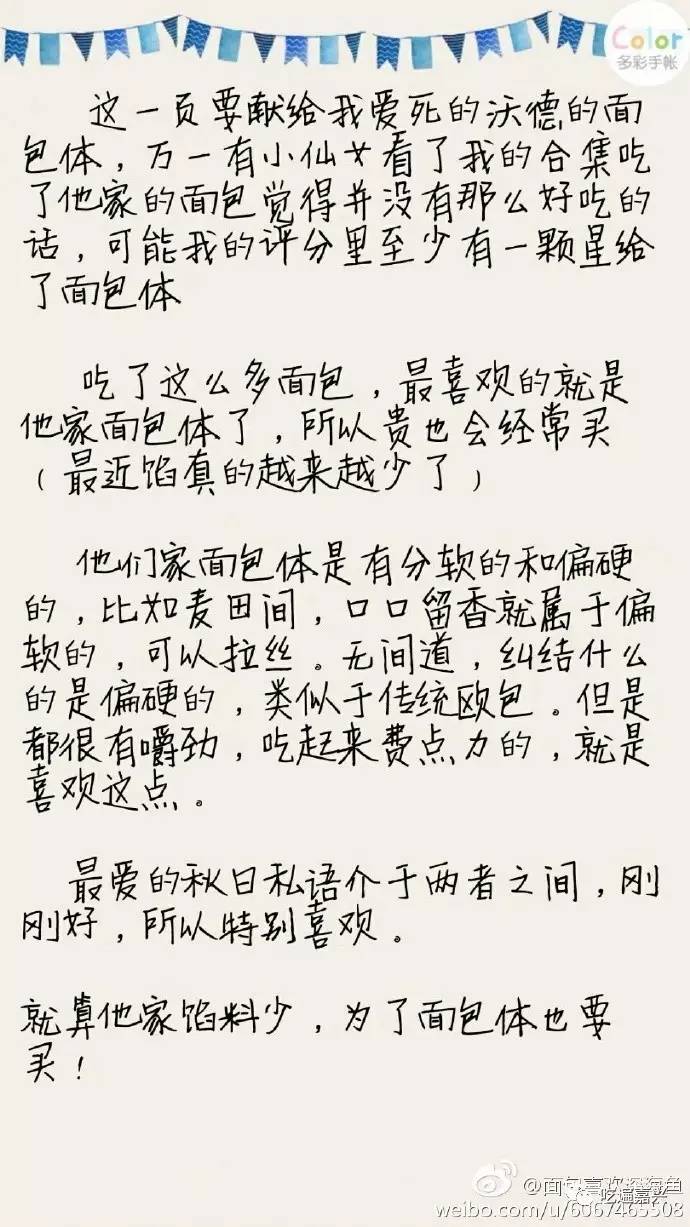 Color
多彩手帐
这一页要献给我爱死的沃德的面
包体，万一有小仙女看了我的合集吃
了他家的面包觉得并没有那么好吃的
话，可能我的评分里至少有一颗星给
了面包体
吃了这么多面包，最喜欢的就是
他家面包体了，所以贵也会经常买
（最近馅真的越来越少了）
他们家面包体是有分软的和偏硬
的，比如麦田间，口口留香就属于偏
软的，可以拉丝。无间道，纠结什么
的是偏硬的，类似于传统欧包。但是
都很有嚼劲，吃起来费点力的，就是
喜欢这点。
最爱的秋日私语介于两者之间，刚
刚好，所以特别喜欢。
就算他家馅料少，为了面包体也要
买！
@面包喜欢深海鱼
吃遍嘉兴
weibo.com/u/6067465508